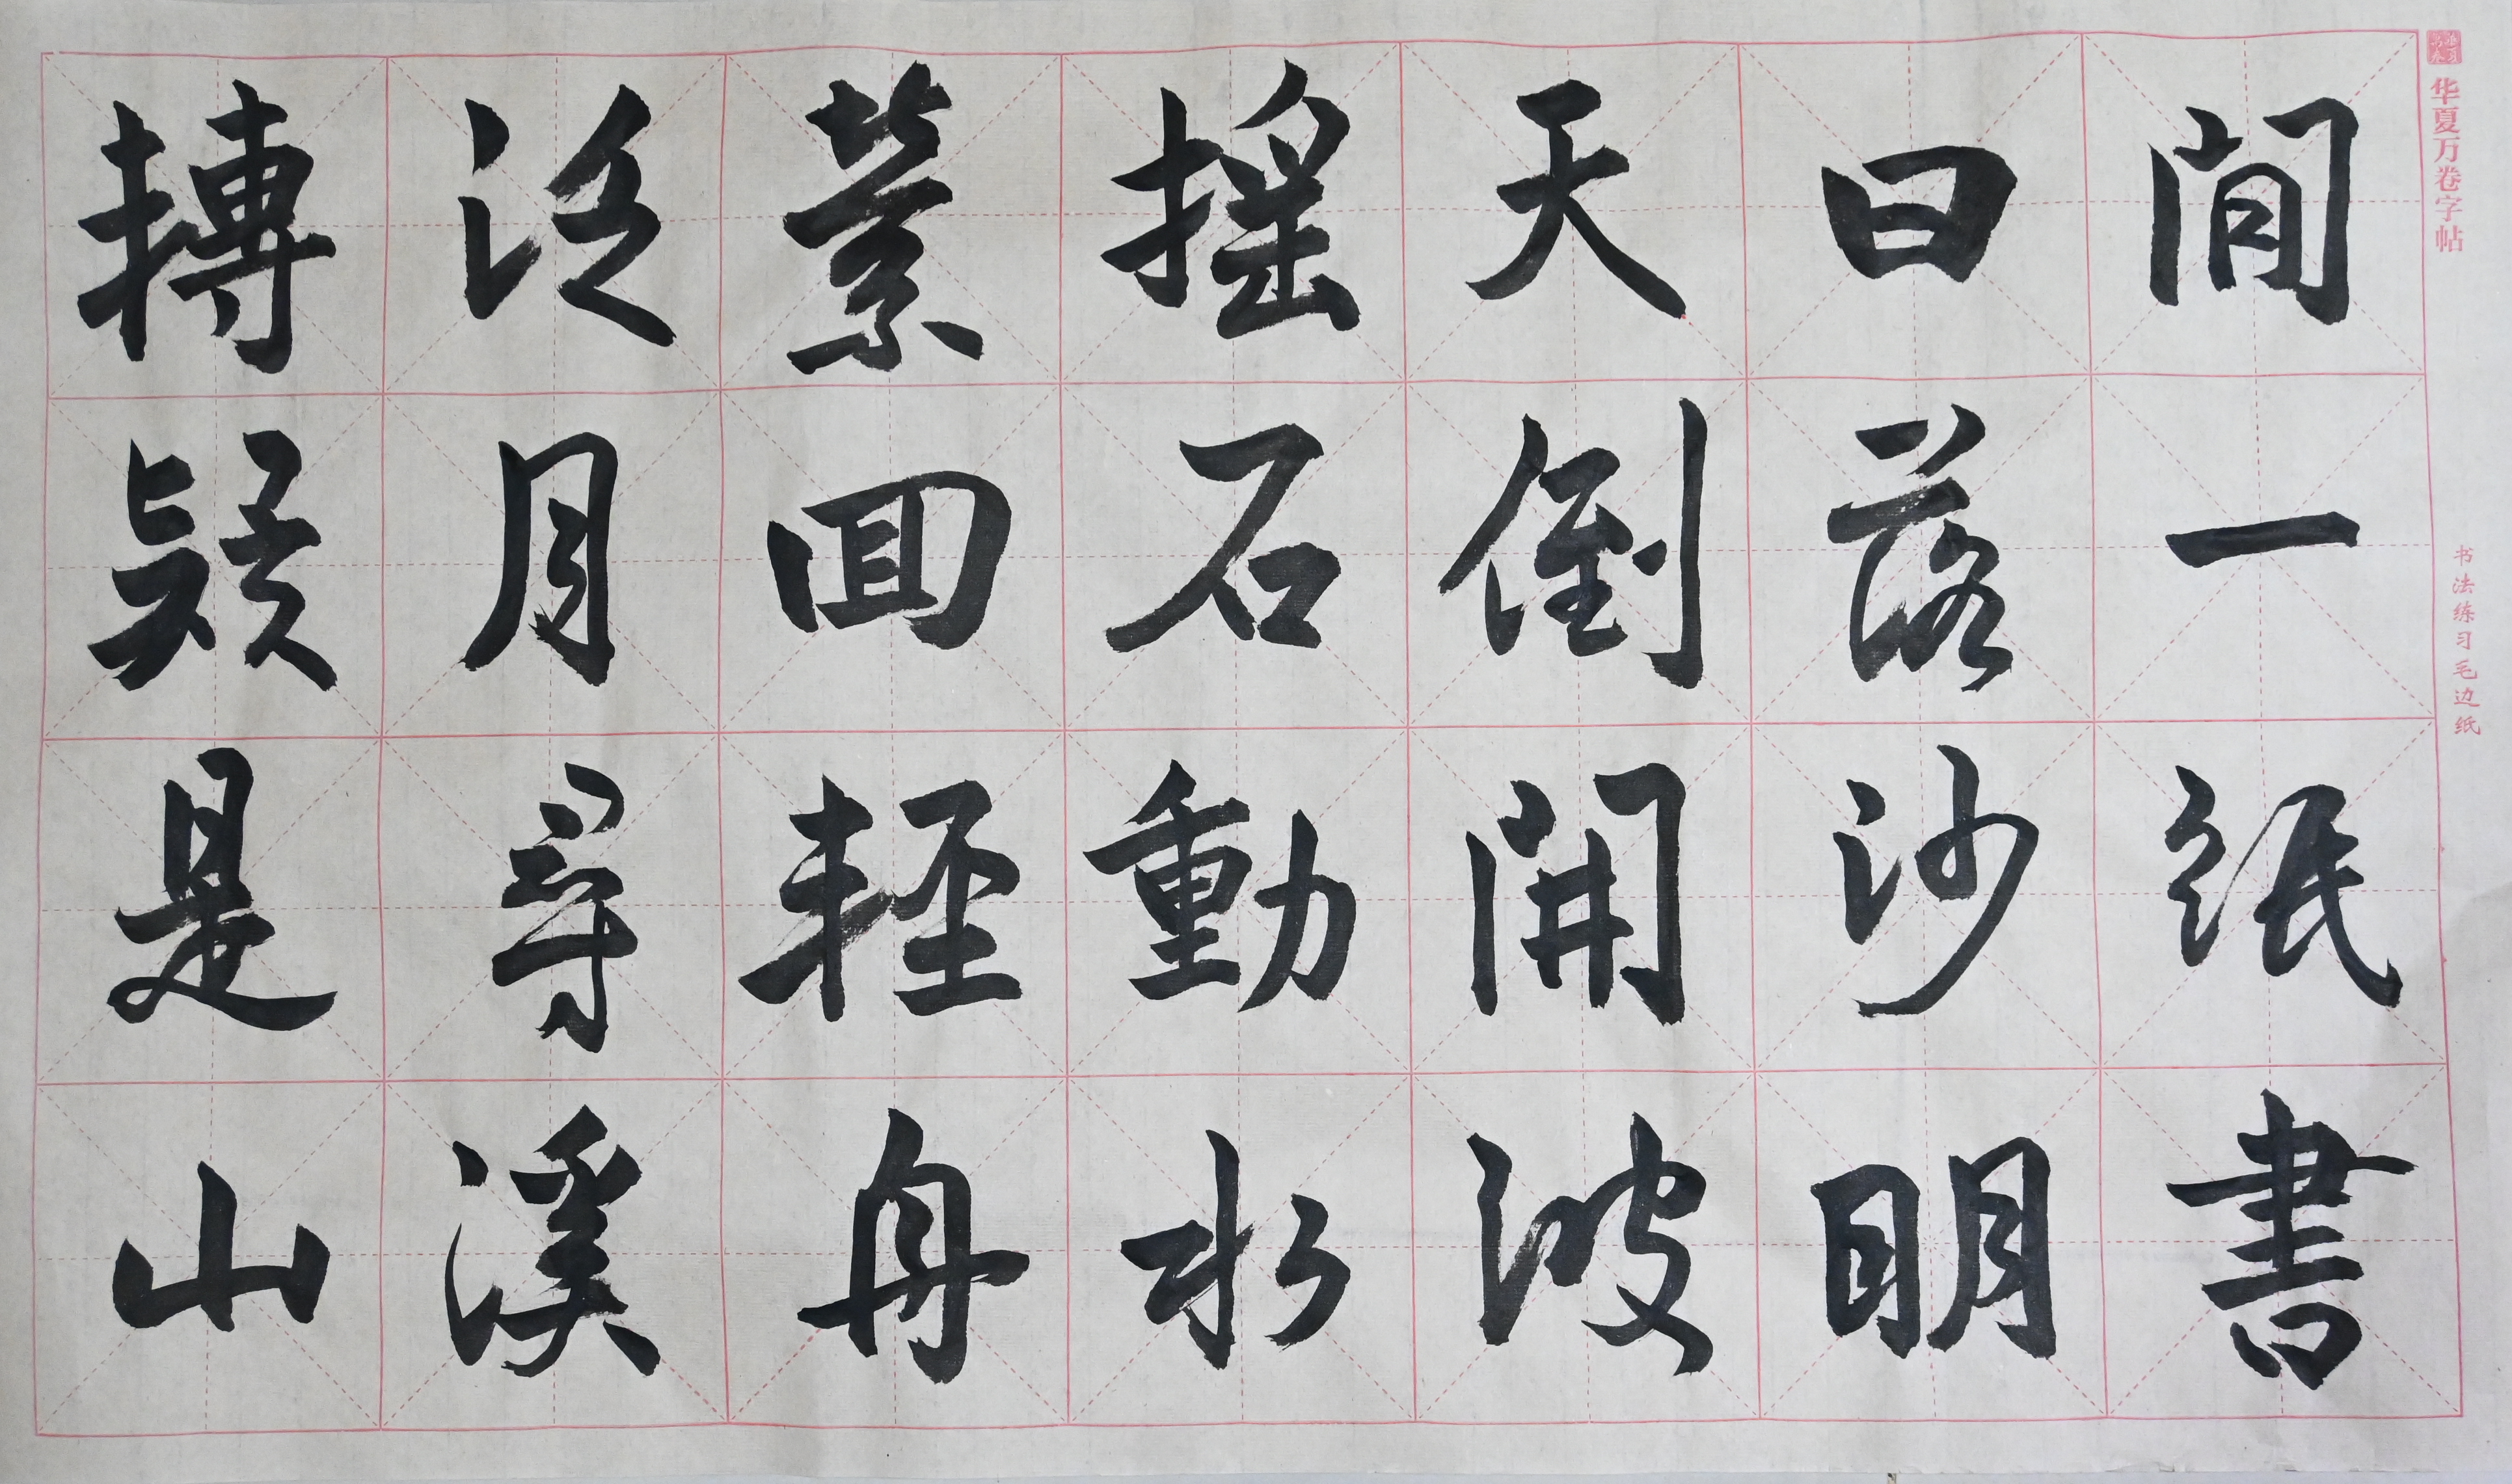 华夏万卷字帖
书法练习毛边纸
閒一紙書
日落沙明
天倒開波
摇石動水
萦回輕舟
泛月尋溪
轉疑是山